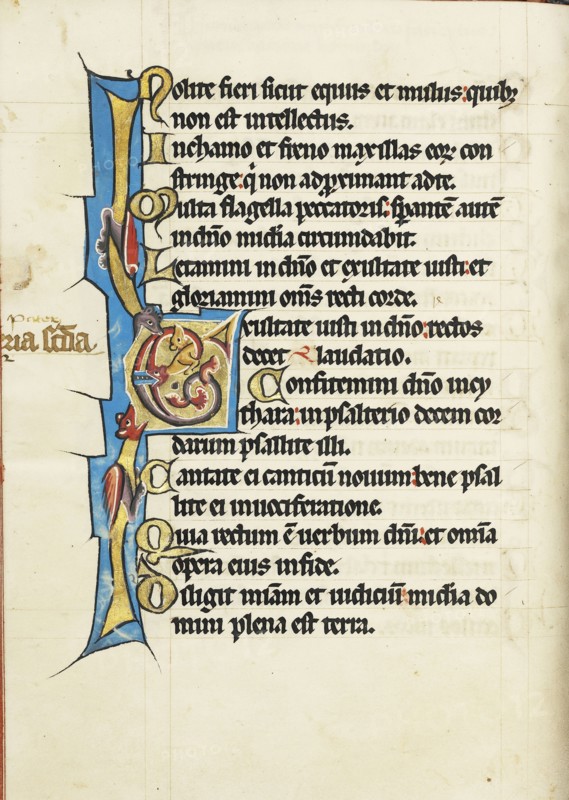 Nolite fieri sicut equus et mulus: quib;
non est intellectus.
In chamo et freno maxillas eoꝝ con
stringe: q̇ non adp̱ximant ad te.
Multa flagella peccatoris: sꝑantē autē
in dn̄o mīcdia circumdabit.
Letamini in dn̄o et exultate iusti: et
gloriamini om̄s recti corde.
Exultate iusti in dn̄o: rectos
decet laudatio.
Confitemini dn̄o in cy
thara: in psalterio decem cor
darum psallite illi.
Cantate ei canticū nouum: bene psal
lite ei in uociferatione.
Quia rectum ē uerbum dn̄i: et omīa
opera eius in fide.
Diligit mīam et iudiciū: mīcdia do
mini plena est terra.
ria scd̄a